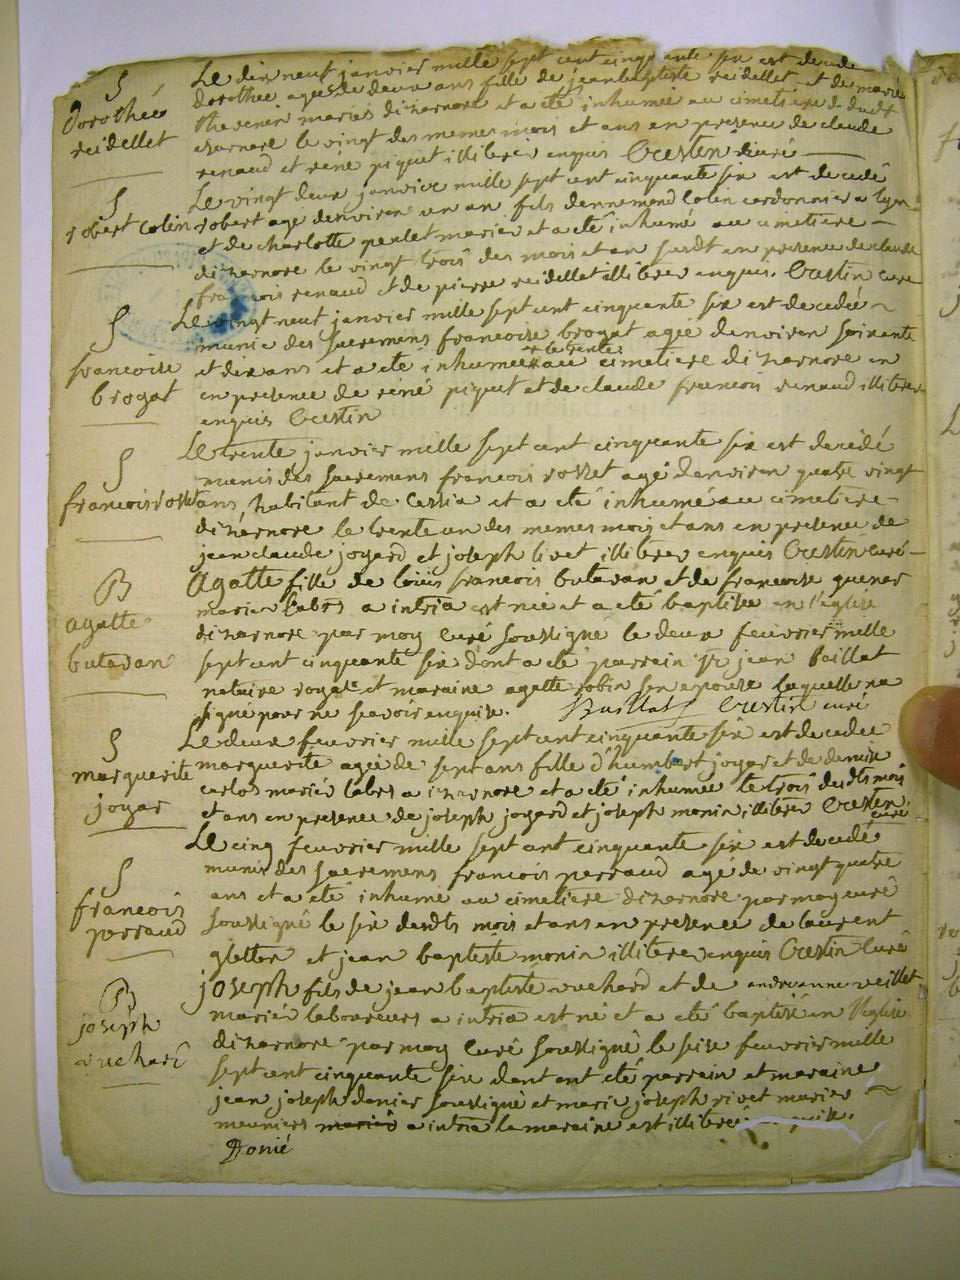 S
dorothée
reidellet
Le dix neuf janvier mille sept cent cinquante six est decedée
dorothee agée de deux ans fille de jean baptiste reidellet et de marie
thevenin mariés dizarnore et a eté inhumée au cimetiere dudt
izarnore le vingt des memes mois et ans en presence de claude
renaud et rene piquet illiteres enquis Crestin curé
S
robert Colin
Le vingt deux janvier mille sept cent cinquante six est decedé
robert age denviron un an fils dennemond Colin cordonnier a lyon
et de charlotte perlet mariés et a eté inhumé au cimetiere
dizarnore le vingt trois des mois et an susdt en presence de claude
francois renaud et de pierre reidellet illiteres enquis. Crestin cure
S
francoise
brogat
Le vingt neuf janvier mille sept cent cinquante six est decedée
munie des sacremens francoise brogat agée denviron soixante
et dix ans et a eté inhumée + le trente au cimetiere dizarnore en
en presence de réné piquet et de claude francois renaud illiteres
enquis Crestin
S
francois rosset
Le trente janvier mille sept cent cinquante six est decédé
munis des sacremens francois rosset agé denviron quatre vingt
ans habitant de Cessia et a eté inhumé au cimetiere
dizarnore le trente un des memes mois et ans en presence de
jean claude joyard et joseph livet illiteres enquis Crestin curé
B
agatte
butavan
Agatte fille de loüis francois butavan et de francoise quenar
mariés labrs a intria est née et a eté baptisée en l'eglise
dizarnore par moy Curé soussigné le deux feuvrier mille
sept cent cinquante six dont a eté parrain sr jean baillat
notaire royal et maraine agatte robin son epouse laquelle na
signé pour ne scavoir enquise. Baillat Crestin curé
S
marguerite
joyar
Le deux feuvrier mille sept cent cinquante six est decedée
marguerite agée de sept ans fille d'humbert joyar et de denise
carlod mariés labrs a izarnore et a eté inhumée le trois desdts mois
et ans en presence de joseph joyard et joseph monin illiteres Crestin
curé
S
francois
perraud
Le cinq feuvrier mille sept cent cinquante six est decedé
munis des sacremens francois perraud agé de vingt quatre
ans et a eté inhumé au cimetiere dizarnore par moy curé
soussigné le six desdts mois et ans en presence de laurent
gletton et jean baptiste monin illiteres enquis Crestin Curé
B
joseph
vuchard
joseph fils de jean baptiste vuchard et de andreanne veillet
mariés laboureurs a intria est né et a eté baptisé en l'eglise
dizarnore par moy Curé soussigné le seise feuvrier mille
sept cent cinquante six dont ont eté parrain et maraine
jean joseph donier soussigné et marie joseph rivet mariés
meuniers mariés a intria la maraine est illiteré
Donié